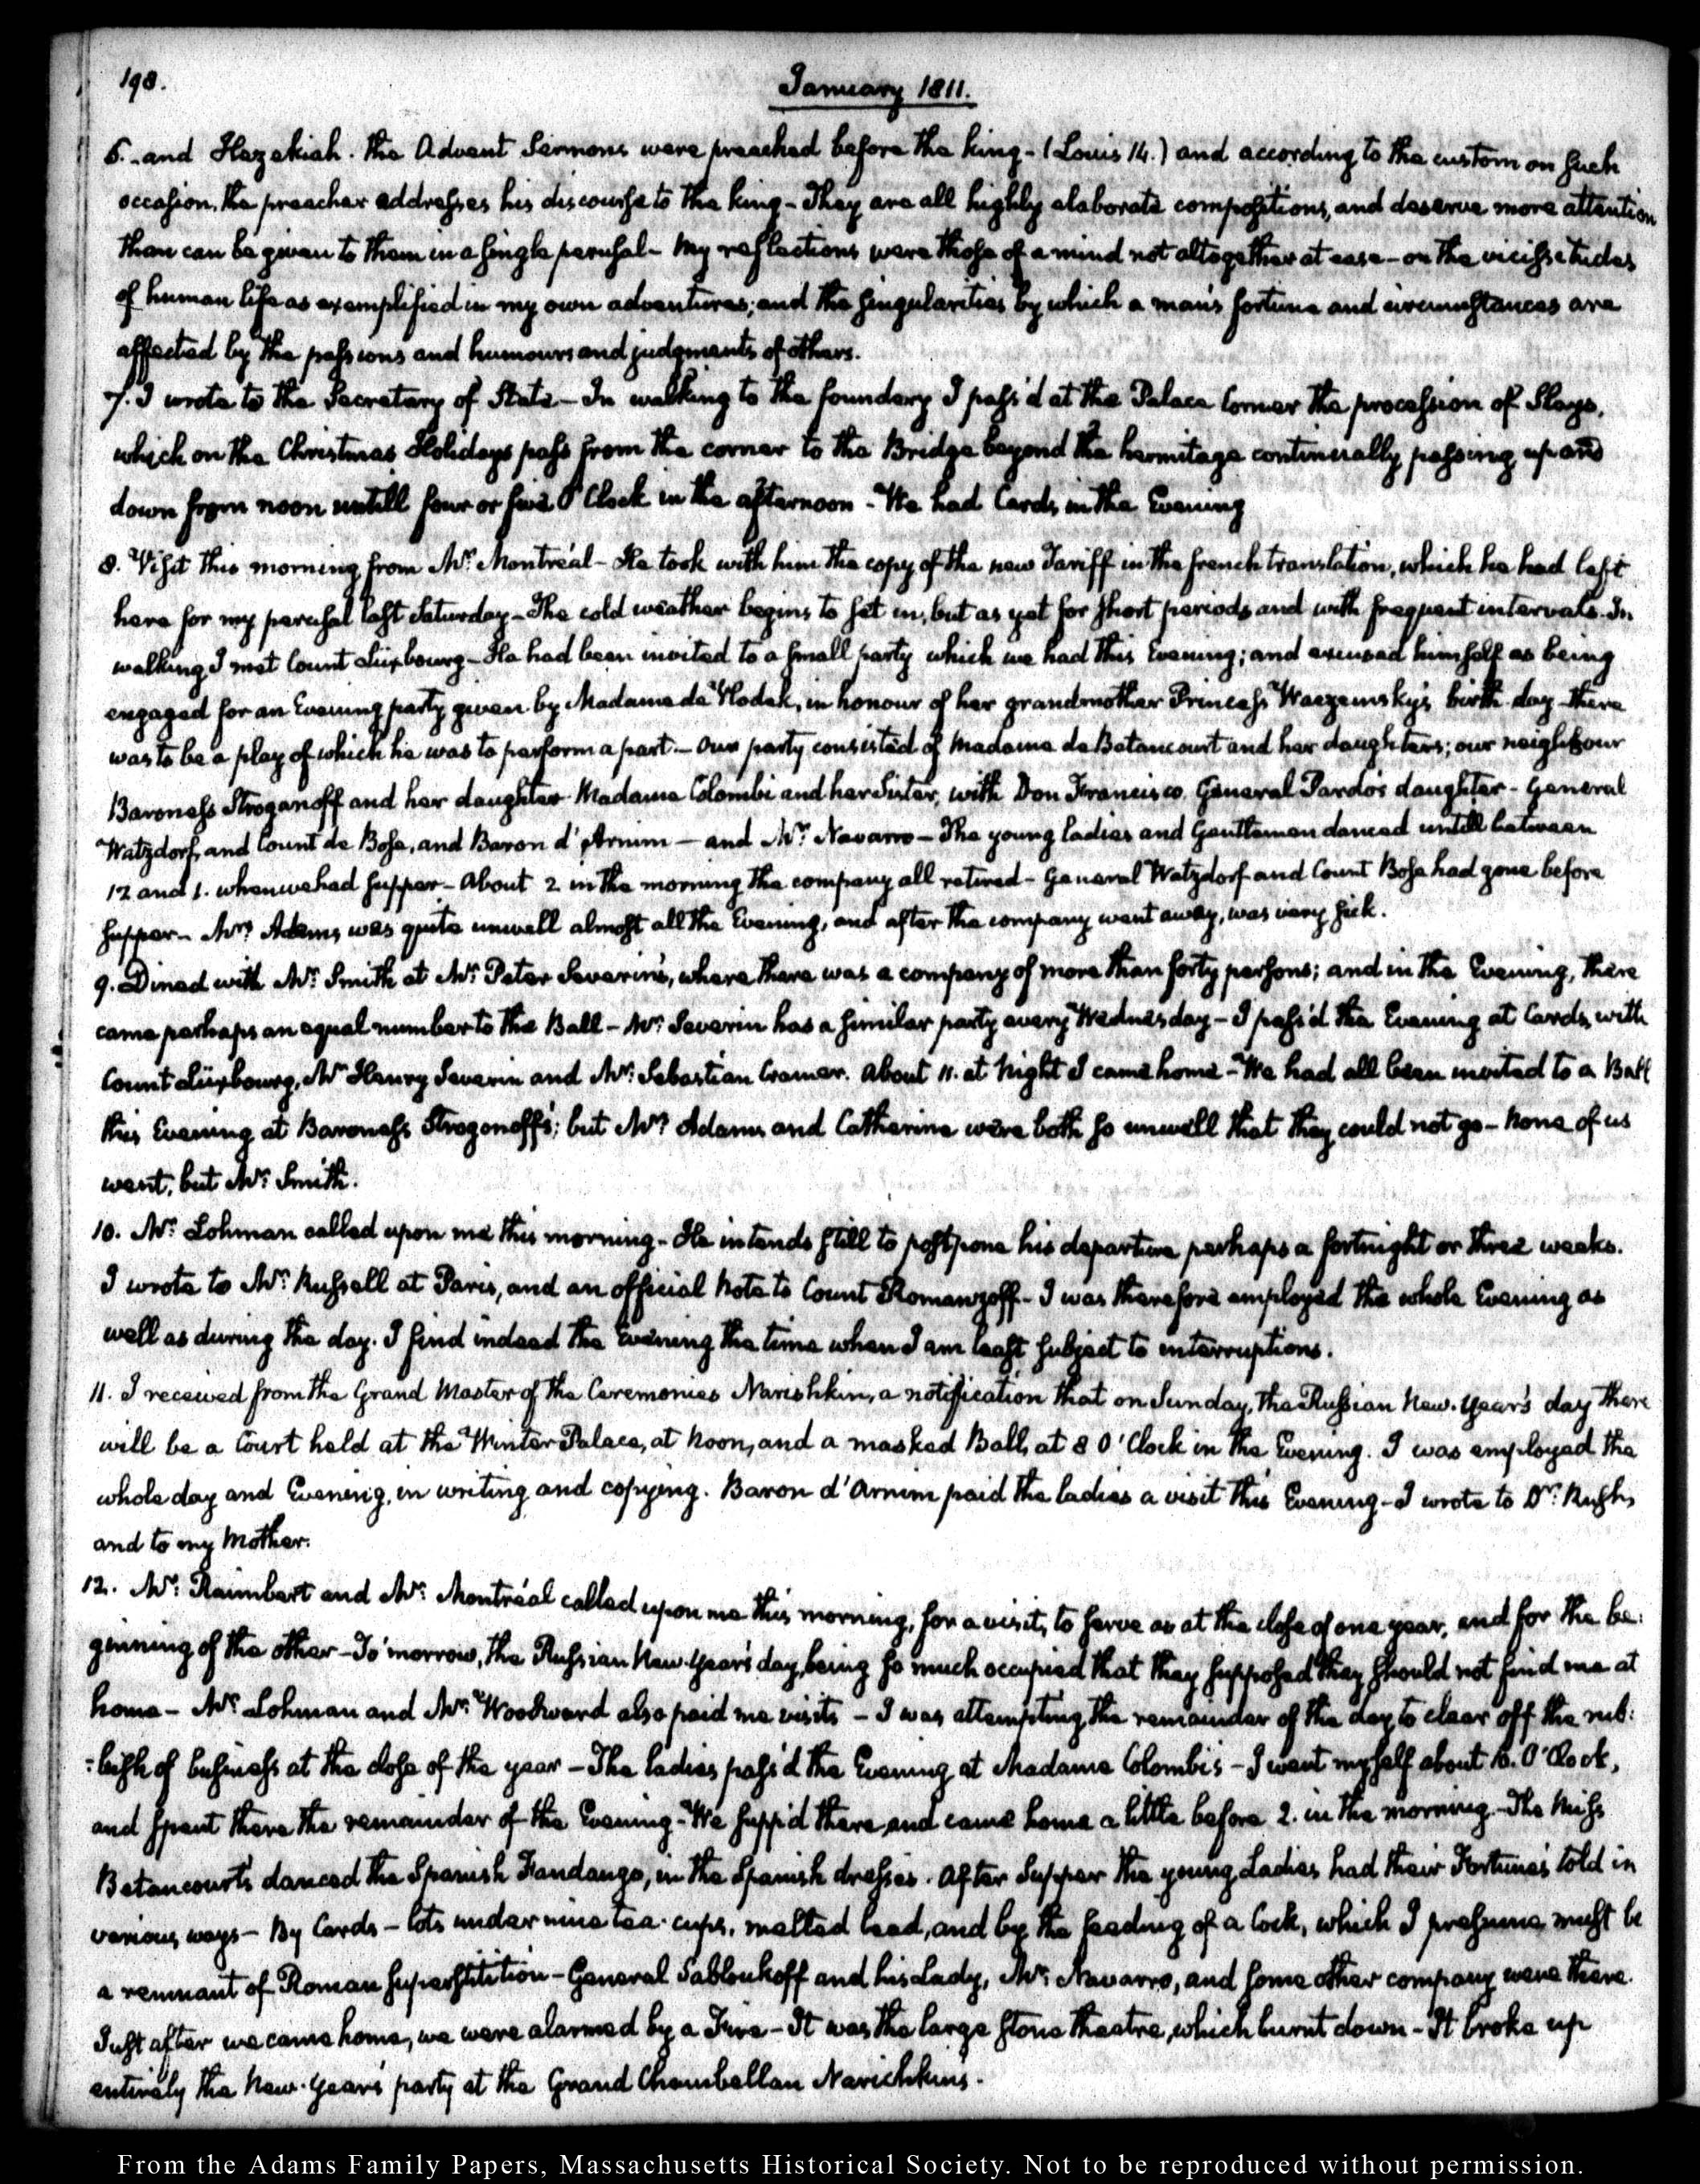 198.
January 1811.
6. and Hezekiah. The Advent Sermons were preached before the king - (Louis 14.) and according to the custom on such
occasion, the preacher addresses his discourse to the king - They are all highly elaborate compositions, and deserve more attention
than can be given to them in a single perusal - My reflections were those of a mind not altogether at ease - on the vicissitudes
of human life as exemplified in my own adventures; and the singularities by which a man's fortune and circumstances are
affected by the passions and humours and judgments of others.
7. I wrote to the Secretary of State - In walking to the foundery I pass'd at the Palace Corner the procession of Slays,
which on the Christmas Holidays pass from the corner to the Bridge beyond the hermitage continually passing up and
down from noon untill four or five O'Clock in the afternoon - We had Cards in the Evening
8. Visit this morning from Mr. Montréal - He took with him the copy of the new Tariff in the french translation, which he had left
here for my perusal last Saturday - The cold weather begins to set in, but as yet for short periods and with frequent intervals. In
walking I met Count Lüxbourg - He had been invited to a small party which we had this Evening; and excused himself as being
engaged for an Evening party given by Madame de Vlodek, in honour of her grandmother Princess Waezemsky's birth-day - there
was to be a play of which he was to perform a part - Our party consisted of Madame de Betancourt and her daughters; our neighbour
Baroness Stroganoff and her daughter Madame Colombi and her Sister, with Don Francisco General Pardo's daughter - General
Watzdorf, and Count de Bose, and Baron d'Arnim - and Mr. Navarro - The young Ladies and Gentlemen danced untill between
12 and 1. when we had supper - About 2 in the morning the company all retired - General Watzdorf and Count Bose had gone before
supper - Mrs. Adams was quite unwell almost all the Evening, and after the company went away, was very sick.
9. Dined with Mr. Smith at Mr. Peter Severin's, where there was a company of more than forty persons; and in the Evening, there
came perhaps an equal number to the Ball - Mr. Severin has a similar party every Wednesday - I pass'd the Evening at Cards, with
Count Lüxbourg, Mr. Henry Severin and Mr. Sebastian Cramer. About 11. at Night I came home - We had all been invited to a Ball
this Evening at Baroness Strogonoff's; but Mrs. Adams and Catherine were both so unwell that they could not go - None of us
went, but Mr. Smith.
10. Mr. Lohman called upon me this morning - He intends still to postpone his departure perhaps a fortnight or three weeks.
I wrote to Mr. Russell at Paris, and an official Note to Count Romanzoff - I was therefore employed the whole Evening as
well as during the day. I find indeed the Evening the time when I am least subject to interruptions.
11. I received from the Grand Master of the Ceremonies Narishkin, a notification that on Sunday, the Russian New-Year's day there
will be a Court held at the Winter Palace, at Noon, and a masked Ball, at 8 O'Clock in the Evening. I was employed the
whole day and Evening, in writing and copying. Baron d'Arnim paid the ladies a visit this Evening - I wrote to Dr. Rush,
and to my Mother.
12. Mr. Raimbert and Mr. Montréal called upon me this morning, for a visit, to serve as at the close of one year, and for the be:
ginning of the other - To'morrow, the Russian New-Year's day, being so much occupied that they supposed they should not find me at
home - Mr. Lohman and Mr. Woodward also paid me visits - I was attempting the remainder of the day to clear off the rub:
:bish of business at the close of the year - The ladies pass'd the Evening at Madame Colombi's - I went myself about 10. O'Clock,
and spent there the remainder of the Evening - We supp'd there, and came home a little before 2. in the morning - The Miss
Betancourt's danced the Spanish Fandango, in the Spanish dresses. After Supper the young Ladies had their Fortunes told in
various ways - By Cards - lots under nine tea-cups, melted lead, and by the feeding of a Cock, which I presume must be
a remnant of Roman Superstition - General Sabloukoff and his Lady, Mr. Navarro, and some other company were there.
Just after we came home, we were alarmed by a Fire - It was the large stone theatre, which burnt down - It broke up
entirely the New-Year's party at the Grand Chambellan Narichkin's.
From the Adams Family Papers, Massachusetts Historical Society. Not to be reproduced without permission.